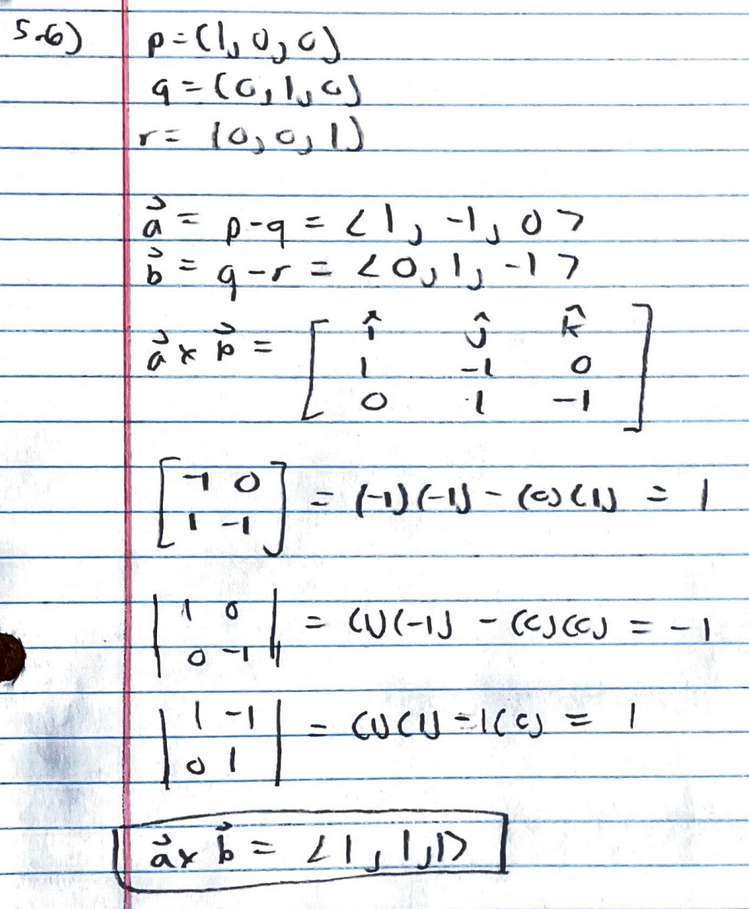 5.6) p = (1, 0, 0)
q = (0, 1, 0)
r = (0, 0, 1)
a⃗ = p-q = <1, -1, 0>
b⃗ = q-r = <0, 1, -1>
a⃗ x b⃗ = [ î ĵ k̂
1 -1 0
0 1 -1 ]
[ -1 0
1 -1 ] = (-1)(-1) - (0)(1) = 1
| 1 0
0 -1 | = (1)(-1) - (0)(0) = -1
| 1 -1
0 1 | = (1)(1) - 1(0) = 1
a⃗ x b⃗ = <1, 1, 1>